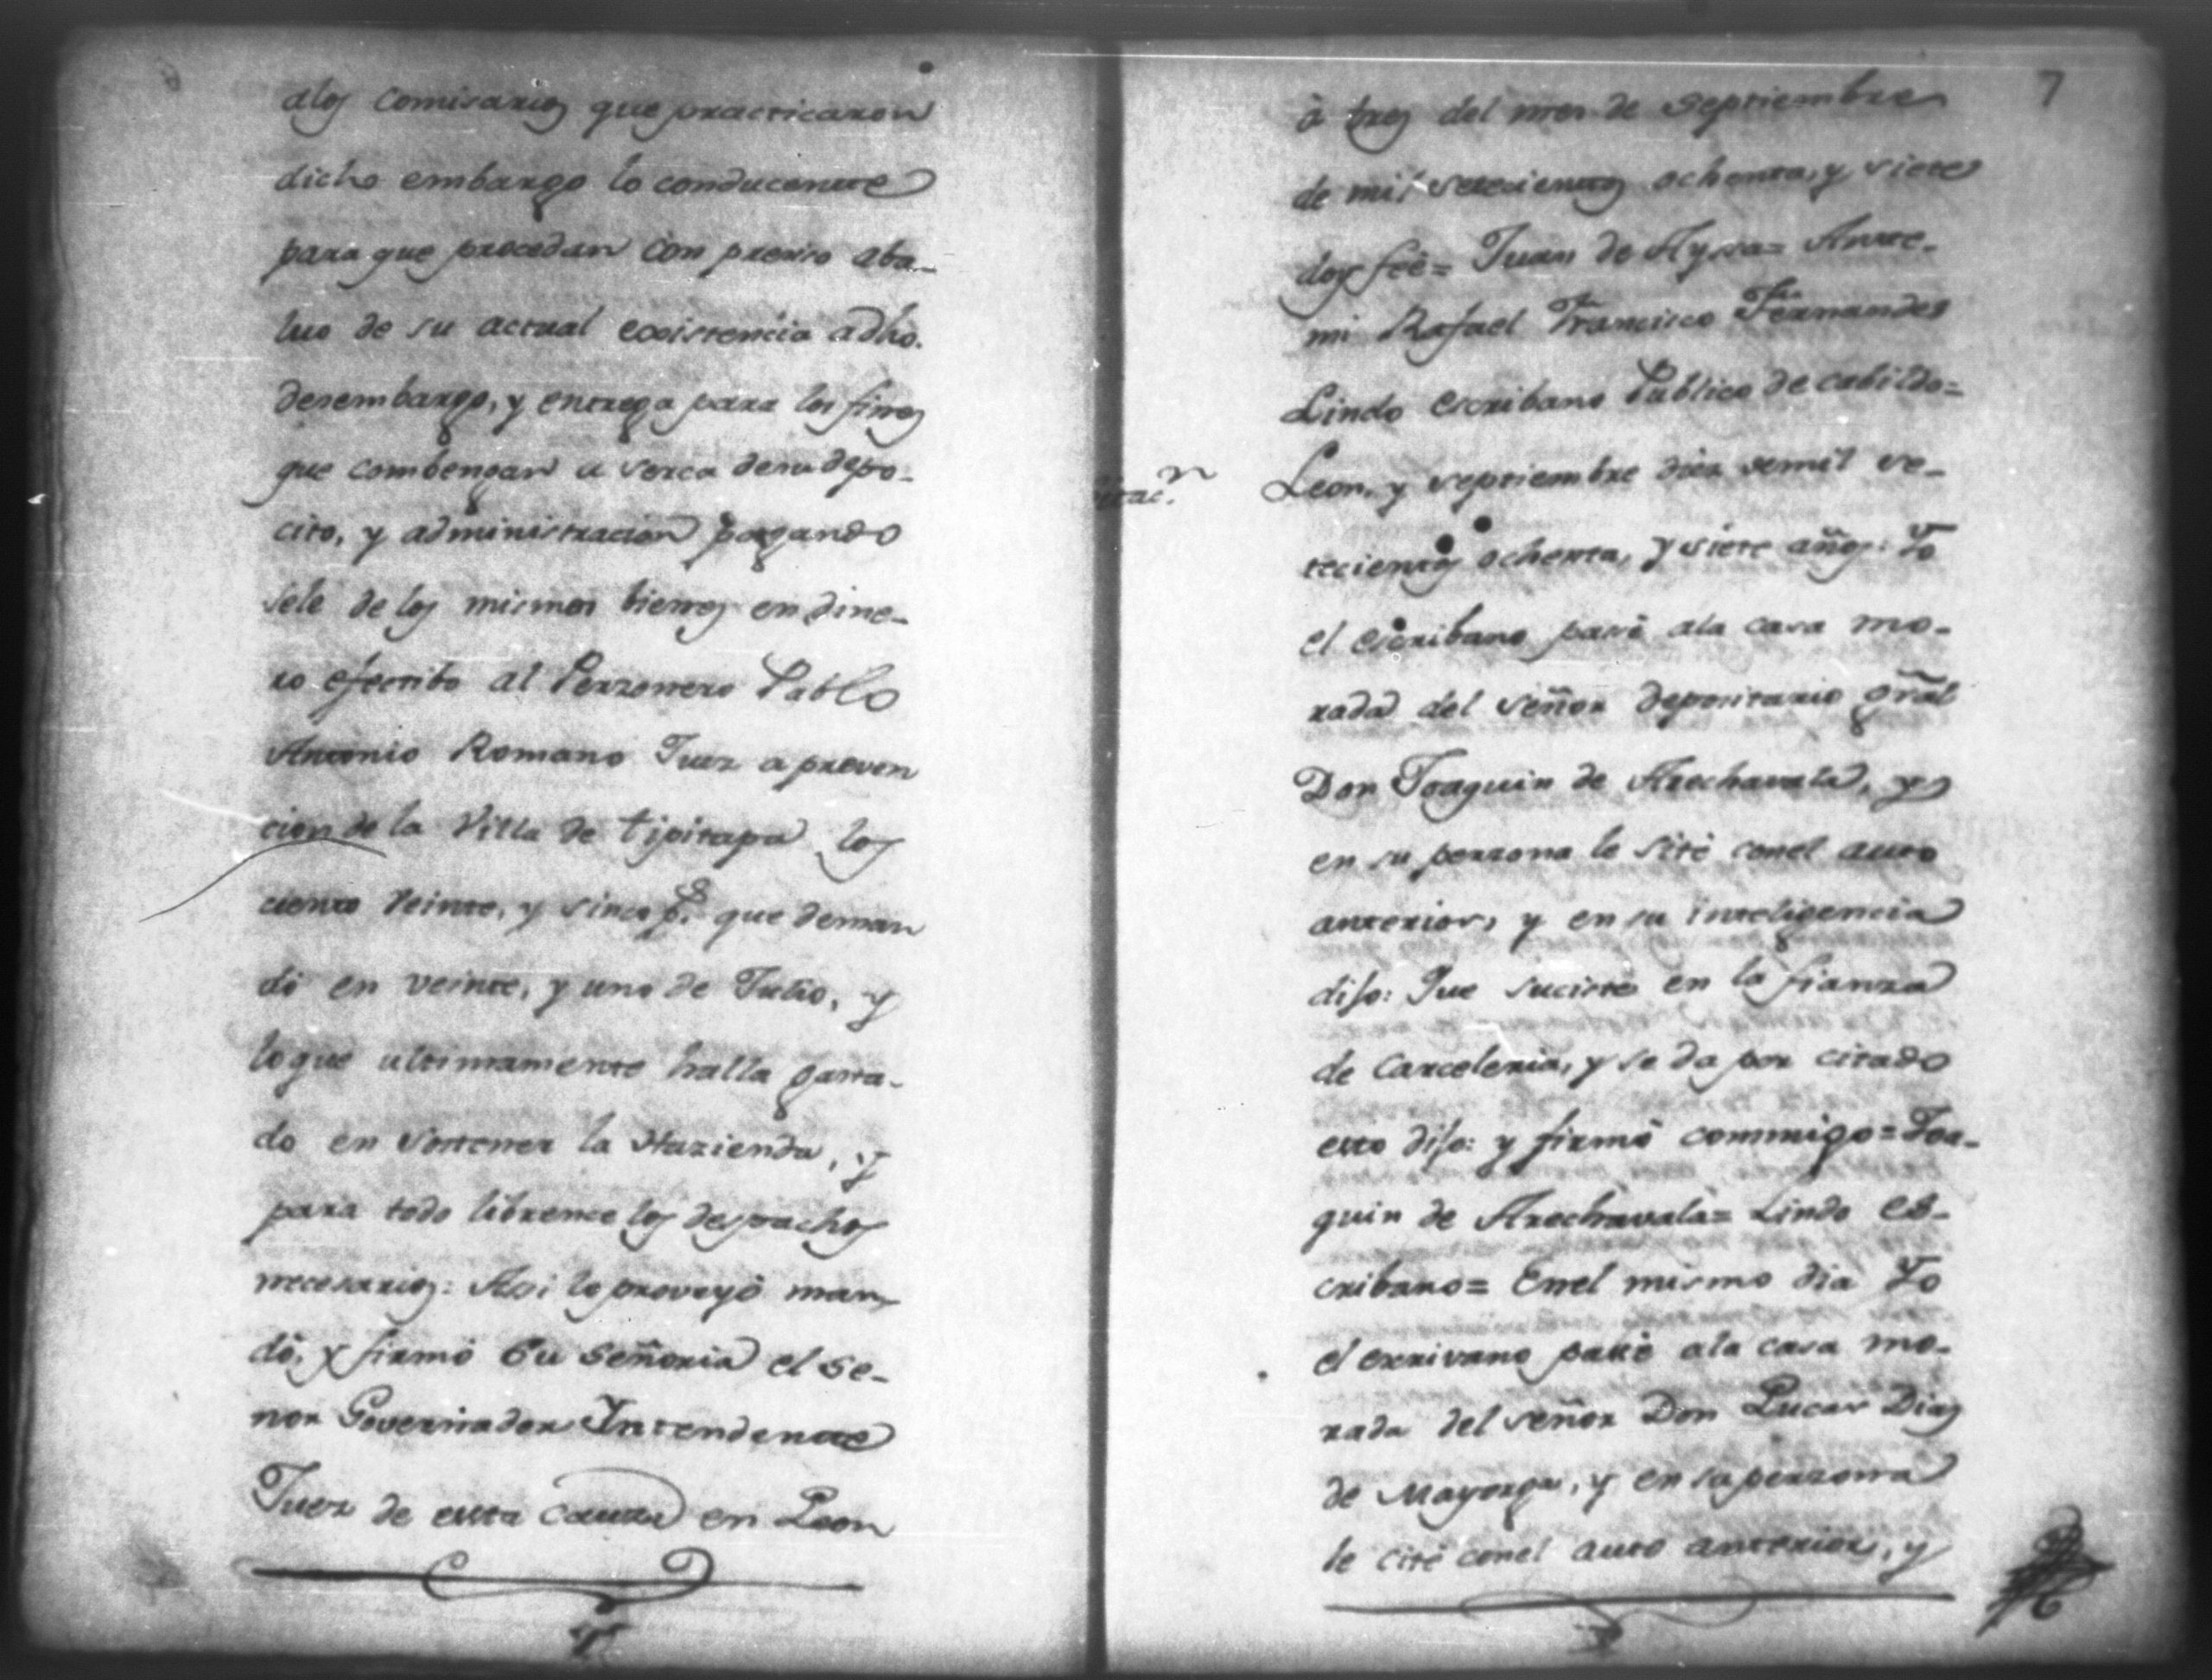 alos Comisarios que practicaron
dicho embargo lo conducente
para que procedan con previo aba-
luo de su actual existencia adho.
desembargo, y entrega para los fines
que combengan a serca desu depo-
cito, y administracion pagando
sele de los mismos bienes en dine-
ro efectibo al Perzonero Pablo
Antonio Romano Juez a preven
cion de la Villa de tipitapa los
ciento Veinte, y sinco ps. que deman
dó en veinte, y uno de Julio, y
loque ultimamente halla gasta-
do en Sostener la Hazienda, y
para todo librence los despachos
necesarios: Asi lo proveyó man-
dó, y firmó Su Señoria el Se-
ñor Governador Intendente
Juez de esta Causa en Leon
7
à tres del mes de Septiembre
de mil setecientos ochenta, y siete
doy feé= Juan de Ayssa= Ante-
mi Rafael Francisco Fernandes
Lindo Escribano Publico de Cabildo=
Leon, y septiembre diez demil se-
tecientos ochenta, y siete años: Yo
el Escribano pasé ala casa mo-
rada del señor Depositario gral
Don Joaquin de Arechavala, y
en su perzona le sité conel auto
anterior, y en su inteligencia
dijo: Que suciste en la fianza
de Carceleria, y se da por citado
esto dijo: y firmó commigo=Joa-
quin de Arechavala= Lindo Es-
cribano= Enel mismo dia Yo
el escrivano pasé ala casa mo-
rada del señor Don Lucas Dias
de Mayorga, y en su perzona
le cité conel auto anterior, y